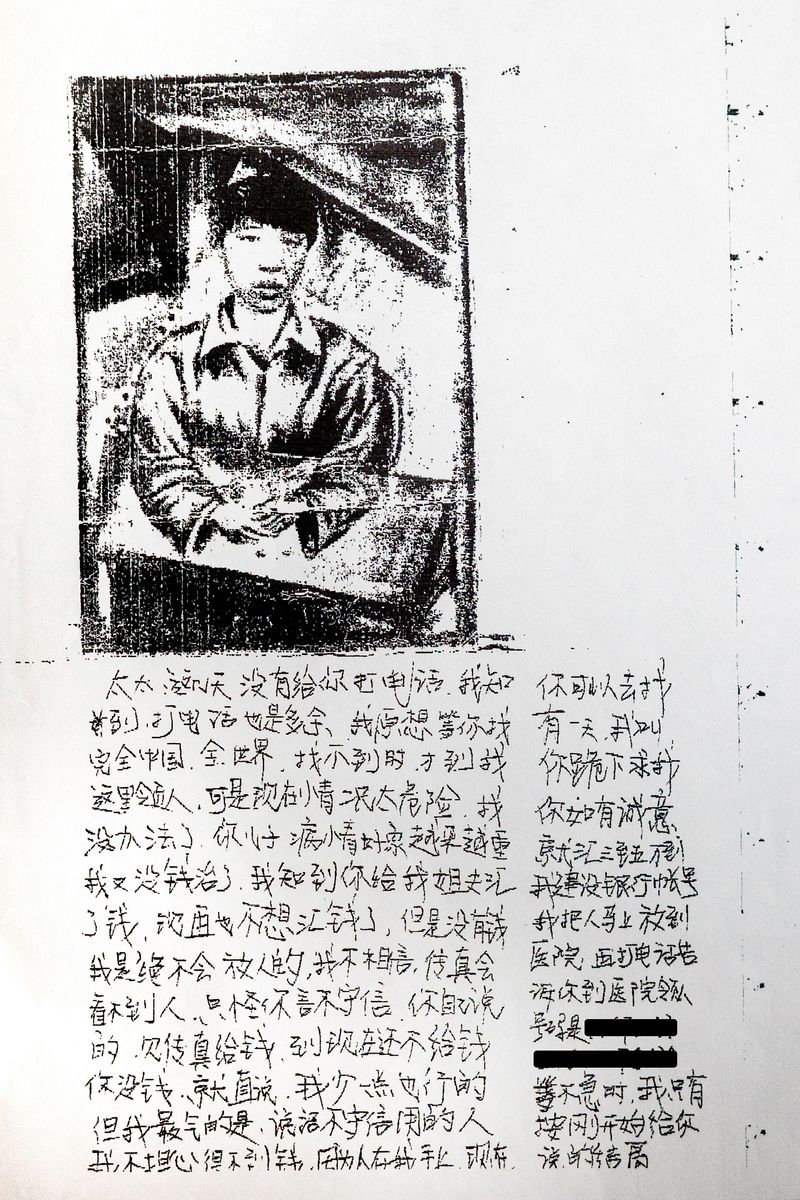 太太 这几天 没有给你打电话. 我知
打电话也是多余、我原想等你找
完全中国.全世界.找不到时.才到我
这里领人.可是现在情况太危险.我
没办法了.你儿子病情好象越来越重
我又没钱治了.我知到你给我姐夫汇
了钱.现再也不想汇钱了.但是没有钱
我是绝不会放人的,我不相信,传真会
看不到人.只怪你言不守信.你自己说
的.欠传真给钱.到现在还不给钱
你没钱、京尤直说.我少一点也行的
但我最气的是.说话不守信用的人
我不担心得不到钱.因为人在我手上.现在
你可以去找
有一天.我叫
你跪下求我
你如有诚意
京尤汇三
我还是没银行帐号
我把人马上放到
医院.再打电话告
诉你到医院领人
号码是
等不急时.我只有
按刚开始给你
说的